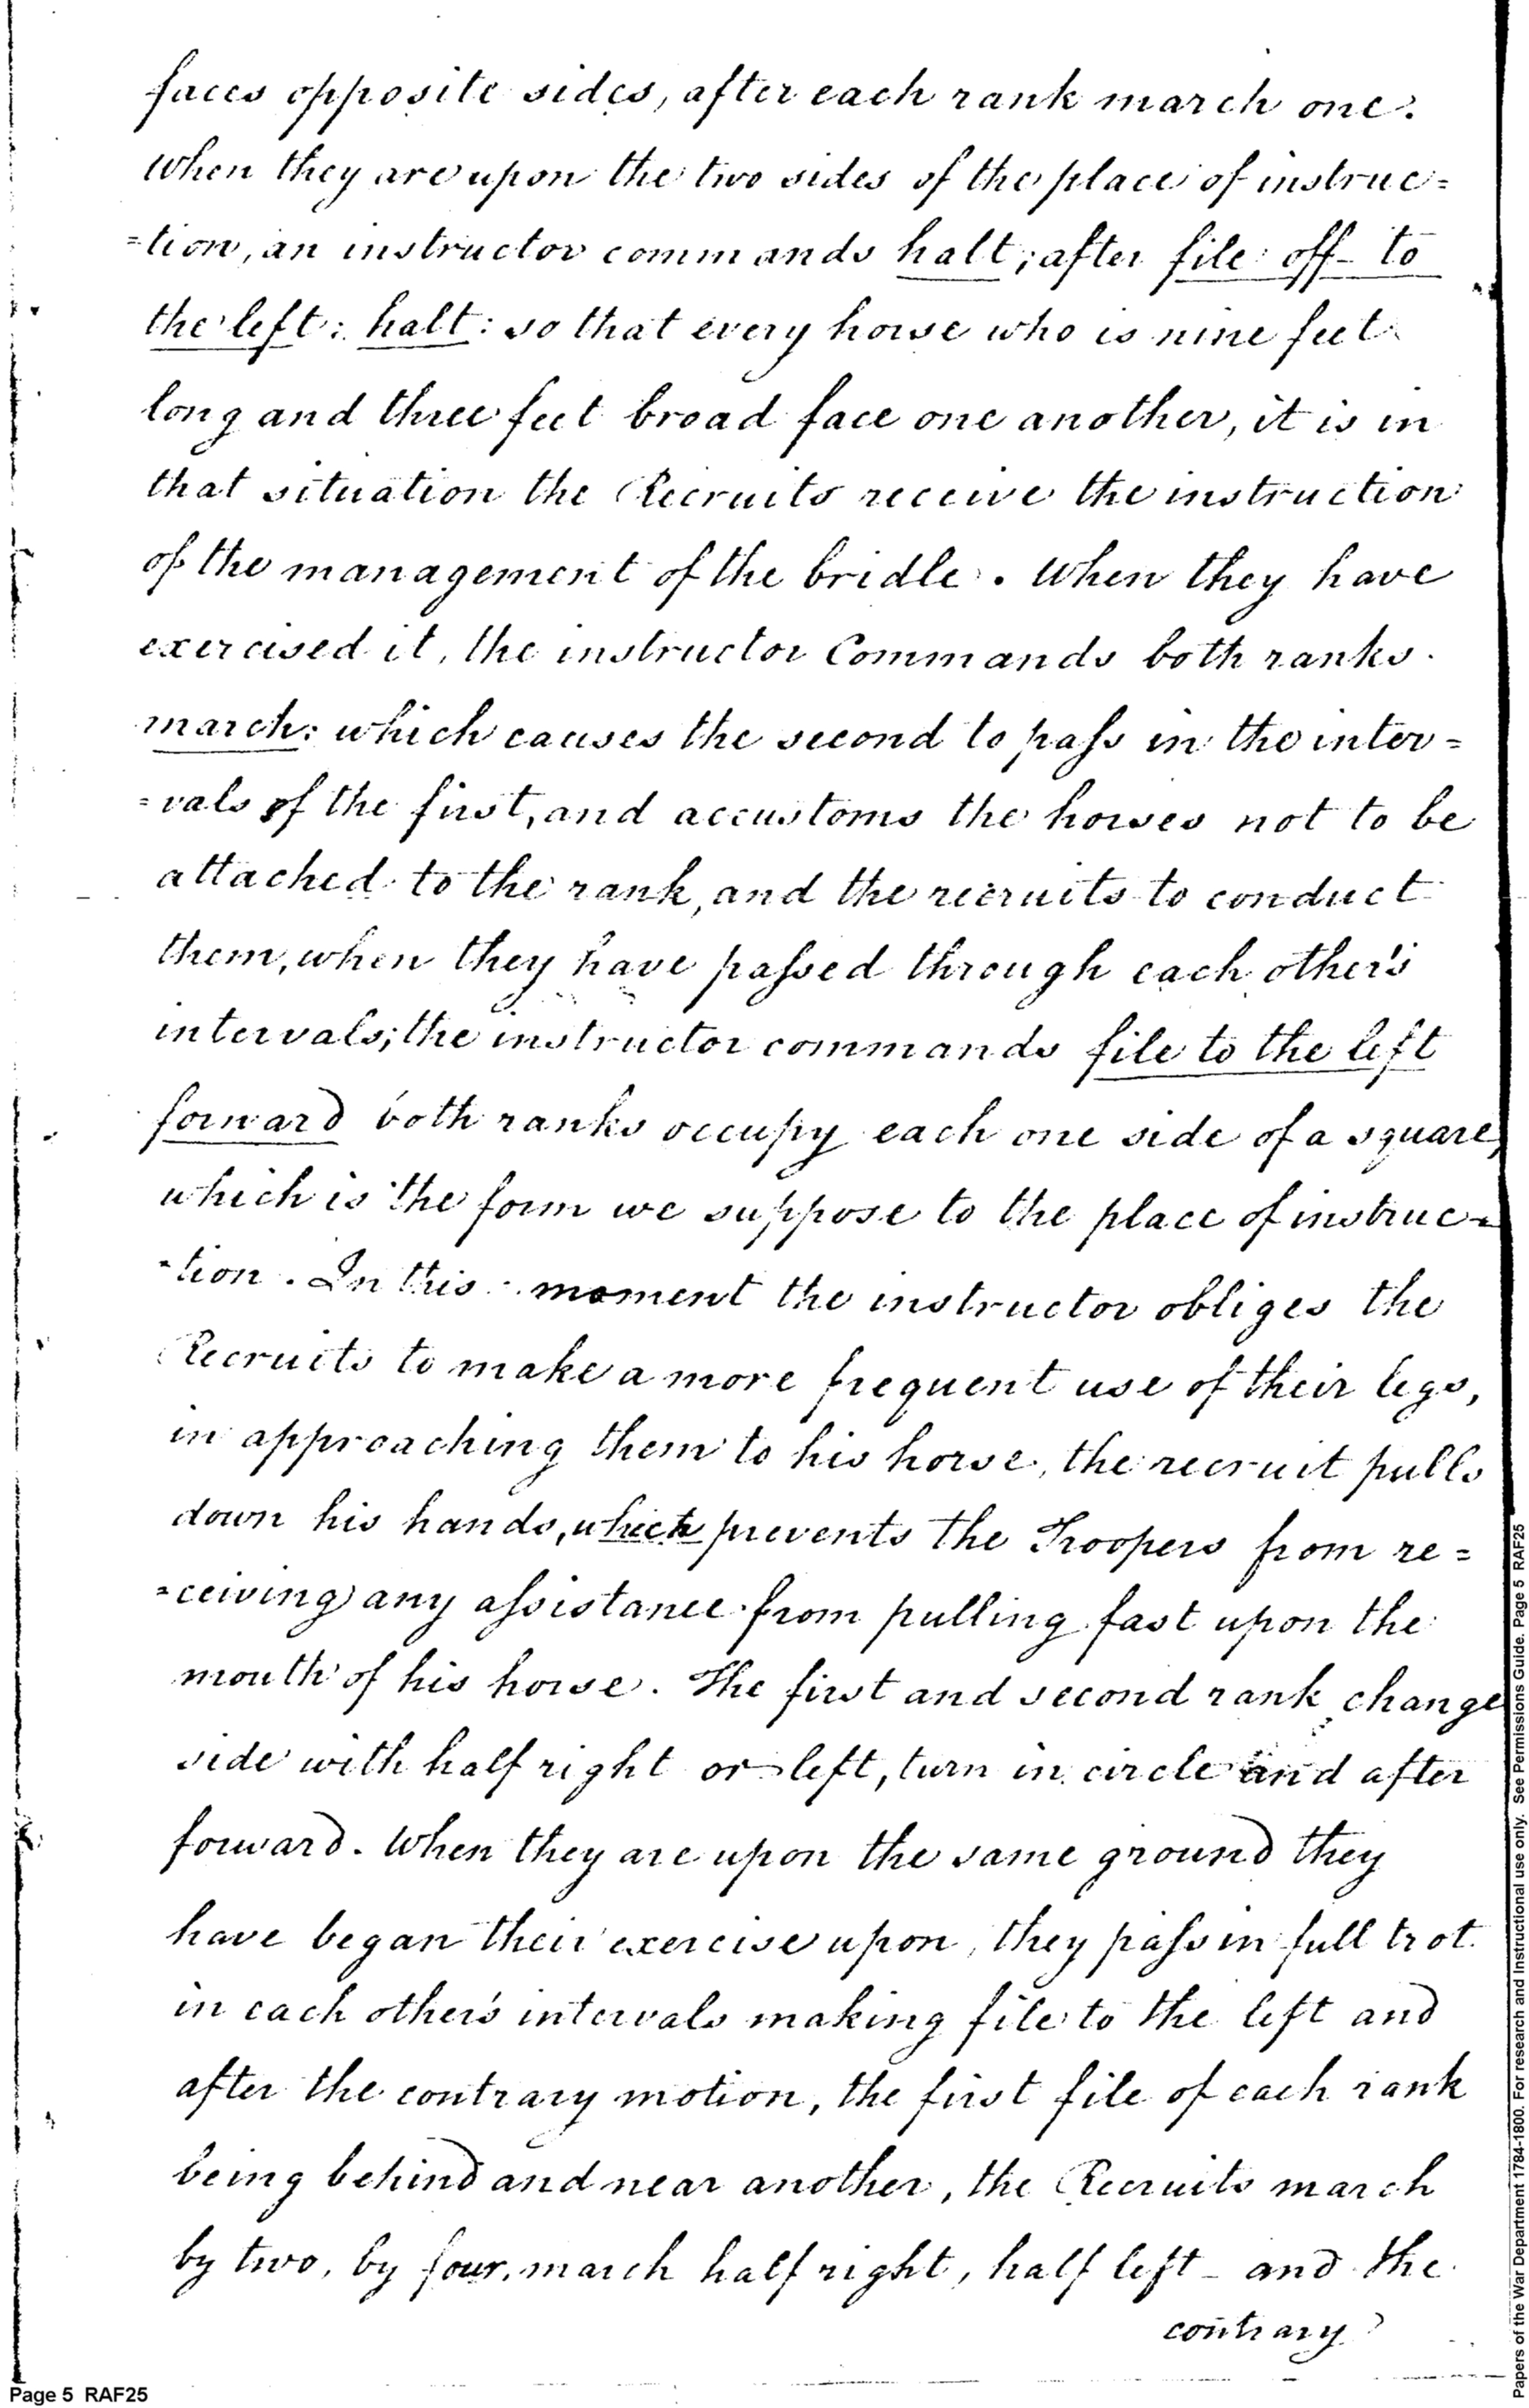 faces opposite sides, after each rank march one.
When they are upon the two sides of the place of instruc=
=tion, an instructor commands halt; after file off to
the left: halt: so that every horse who is nine feet
long and three feet broad face one another, it is in
that situation the Recruits receive the instruction
of the management of the bridle. When they have
exercised it, the instructor Commands both ranks.
march: which causes the second to pass in the inter=
=vals of the first, and accustoms the horses not to be
attached to the rank, and the recruits to conduct
them, when they have passed through each other's
intervals; the instructor commands file to the left
forward both ranks occupy each one side of a square,
which is the form we suppose to the place of instruc=
=tion. In this moment the instructor obliges the
Recruits to make a more frequent use of their legs,
in approaching them to his horse, the recruit pulls
down his hands, which prevents the Troopers from re=
=ceiving any assistance from pulling fast upon the
mouth of his horse. The first and second rank change
side with half right or left, turn in circle and after
forward. When they are upon the same ground they
have began their exercise upon, they pass in full trot
in each other's intervals making file to the left and
after the contrary motion, the first file of each rank
being behind and near another, the Recruits march
by two, by four, march half right, half left - and the
contrary
Page 5 RAF25
Papers of the War Department 1784-1800. For research and Instructional use only. See Permissions Guide. Page 5 RAF25